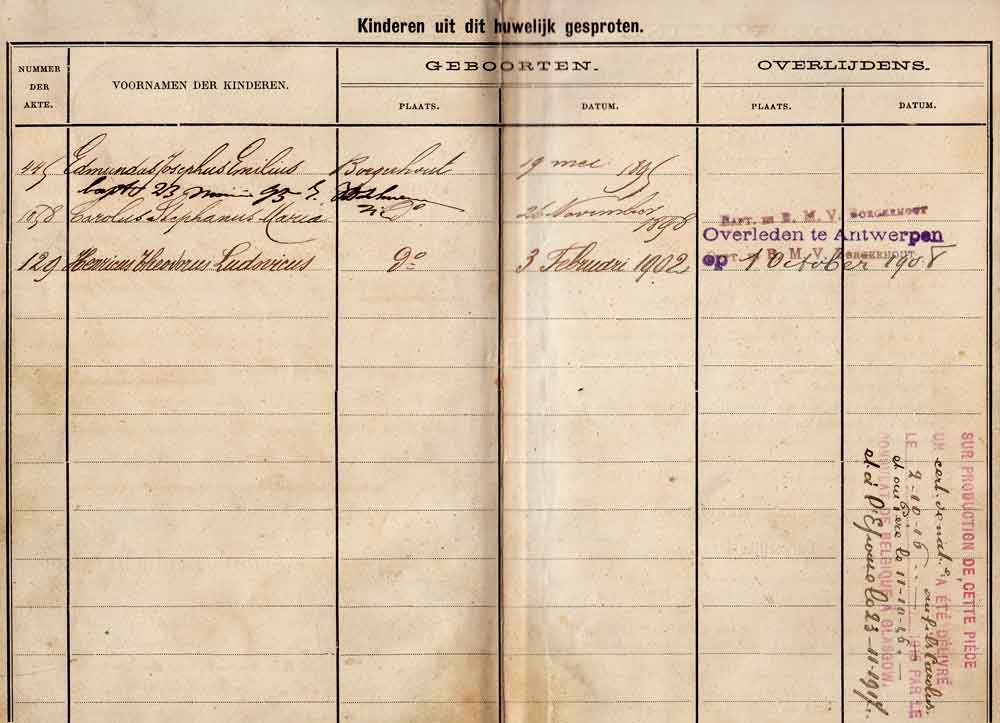 Kinderen uit dit huwelijk gesproten.
NUMMER DER AKTE.
VOORNAMEN DER KINDEREN.
GEBOORTEN.
OVERLIJDENS.
PLAATS.
DATUM.
PLAATS.
DATUM.
445 Edmundus Josephus Emilius Borgerhout 19 mei 1895
bapt 23 95
1058 Carolus Stephanus Maria do 26 November 1898
BAPT. IN B. M. V. BORGERHOUT
Overleden te Antwerpen
129 Henricus Theodorus Ludovicus do 3 Februari 1902
op 1 October 1908
B. M. V. BORGERHOUT
SUR PRODUCTION DE CETTE PIÈCE
UN cert. de nat. A ÉTÉ DÉLIVRÉ
au fils Carolus.
LE 2-10-16 191 PAR LE
et au Père le 11-10-16.
CONSULAT DE BELGIQUE À GLASGOW.
et à l'Epouse le 23-11-1917.